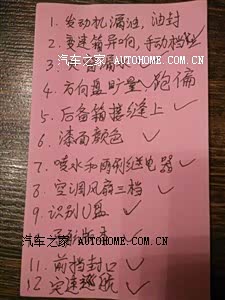 1. 发动机漏油,油封
2. 变速箱异响,手动档
汽车之家 AUTOHOME.COM.CN
3.
4. 方向盘旷量、跑偏
5. 后备箱接缝上
6. 漆面颜色
7. 喷水和雨刷继电器
8. 空调风扇三档
汽车之家 AUTOHOME.COM.CN
9. 识别U盘
汽车之家 AUTOHOME.COM.CN
11. 前档封口
12